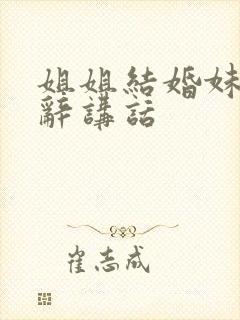 姐姐結婚妹
辭講話
崔志成